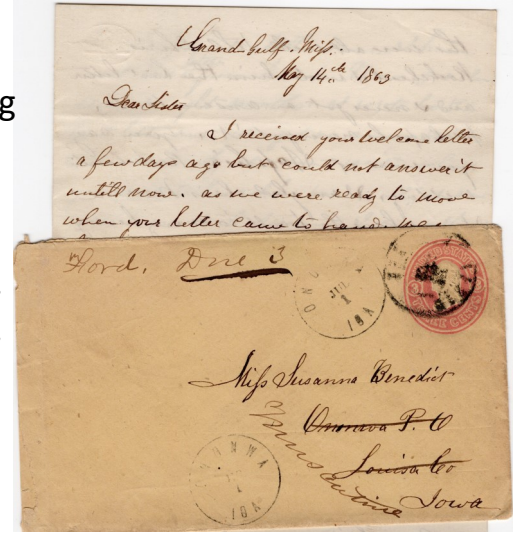 g
Grand Gulf. Miss.
May 14th 1863
Dear Sister
I received your welcome letter
a few days ago but could not answer it
untill now. as we were ready to move
when your letter came to hand.
Ford. Due 3
ON
JUL
1
IOA
Miss Susanna Benedict
Ononwa P. O
Louisa Co
Muscatine
Iowa
ONONWA
1
IOA